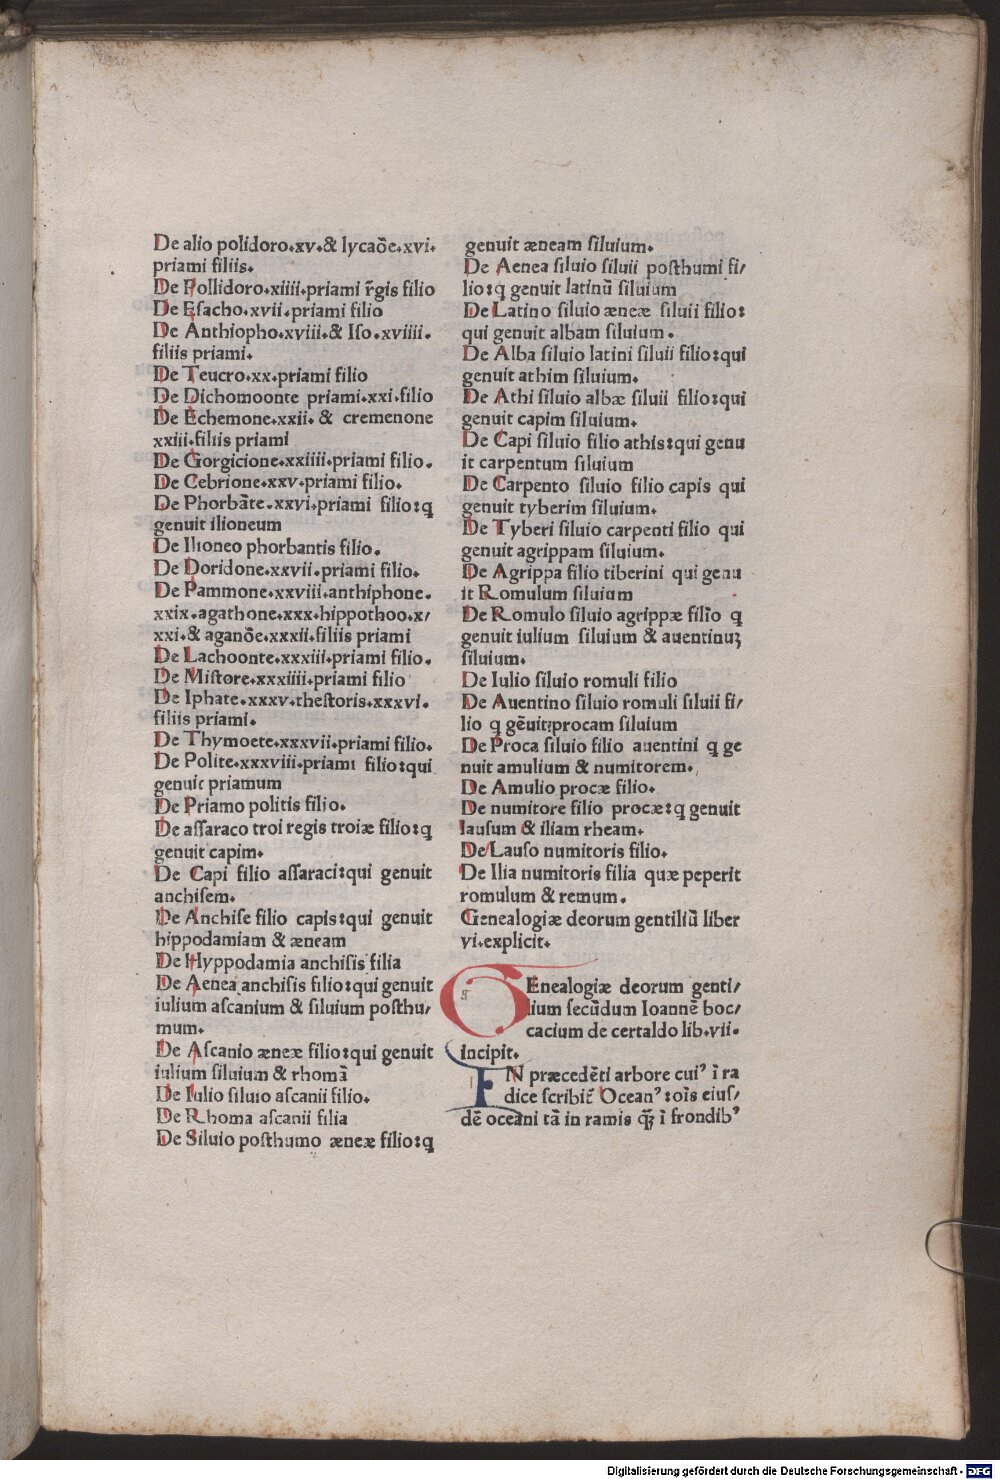 De alio polidoro.xv.& lycaōe.xvi.
priami filiis.
De Pollidoro.xiiii.priami r̄gis filio
De Esacho.xvii.priami filio
De Anthiopho.xviii.& Iſo.xviiii.
filiis priami.
De Teucro.xx.priami filio
De Dichomoonte priami.xxi.filio
De Echemone.xxii.& cremenone
xxiii.filiis priami
De Gorgicione.xxiiii.priami filio.
De Cebrione.xxv.priami filio.
De Phorbāte.xxvi.priami filio:q
genuit ilioneum
De Ilioneo phorbantis filio.
De Doridone.xxvii.priami filio.
De Pammone.xxviii.anthiphone.
xxix.agathone.xxx.hippothoo.x/
xxi.& aganōe.xxxii.filiis priami
De Lachoonte.xxxiii.priami filio.
De Miſtore.xxxiiii.priami filio
De Iphate.xxxv.theſtoris.xxxvi.
filiis priami.
De Thymoete.xxxvii.priami filio.
De Polite.xxxviii.priami filio:qui
genuit priamum
De Priamo politis filio.
De aſſaraco troi regis troiæ filio:q
genuit capim.
De Capi filio aſſaraci:qui genuit
anchiſem.
De Anchiſe filio capis:qui genuit
hippodamiam & æneam
De Hyppodamia anchiſis filia
De Aenea anchiſis filio:qui genuit
iulium aſcanium & ſiluium poſthu/
mum.
De Aſcanio æneæ filio:qui genuit
iulium ſiluium & rhomā
De Iulio ſiluio aſcanii filio.
De Rhoma aſcanii filia
De Siluio poſthumo æneæ filio:q
genuit æneam ſiluium.
De Aenea ſiluio ſiluii poſthumi fi/
lio:q genuit latinū ſiluium
De Latino ſiluio æneæ ſiluii filio:
qui genuit albam ſiluium.
De Alba ſiluio latini ſiluii filio:qui
genuit athim ſiluium.
De Athi ſiluio albæ ſiluii filio:qui
genuit capim ſiluium.
De Capi ſiluio filio athis:qui genu
it carpentum ſiluium
De Carpento ſiluio filio capis qui
genuit tyberim ſiluium.
De Tyberi ſiluio carpenti filio qui
genuit agrippam ſiluium.
De Agrippa filio tiberini qui genu
it Romulum ſiluium
De Romulo ſiluio agrippæ filio q
genuit iulium ſiluium & auentinuꝫ
ſiluium.
De Iulio ſiluio romuli filio
De Auentino ſiluio romuli ſiluii fi/
lio q gēuit:procam ſiluium
De Proca ſiluio filio auentini q ge
nuit amulium & numitorem.
De Amulio procæ filio.
De numitore filio procæ:q genuit
lauſum & iliam rheam.
De Lauſo numitoris filio.
De Ilia numitoris filia quæ peperit
romulum & remum.
Genealogiæ deorum gentiliū liber
vi.explicit.
GEnealogiæ deorum genti/
lium ſecūdum Ioannē boc/
cacium de certaldo lib.vii.
incipit.
IN præcedēti arbore cuiꝰ ī ra
dice ſcribit̄ Oceanꝰ:oīs eiuſ/
dē oceani tā in ramis ꝗ̄ꝫ ī frondibꝰ
Digitalisierung gefördert durch die Deutsche Forschungsgemeinschaft - DFG